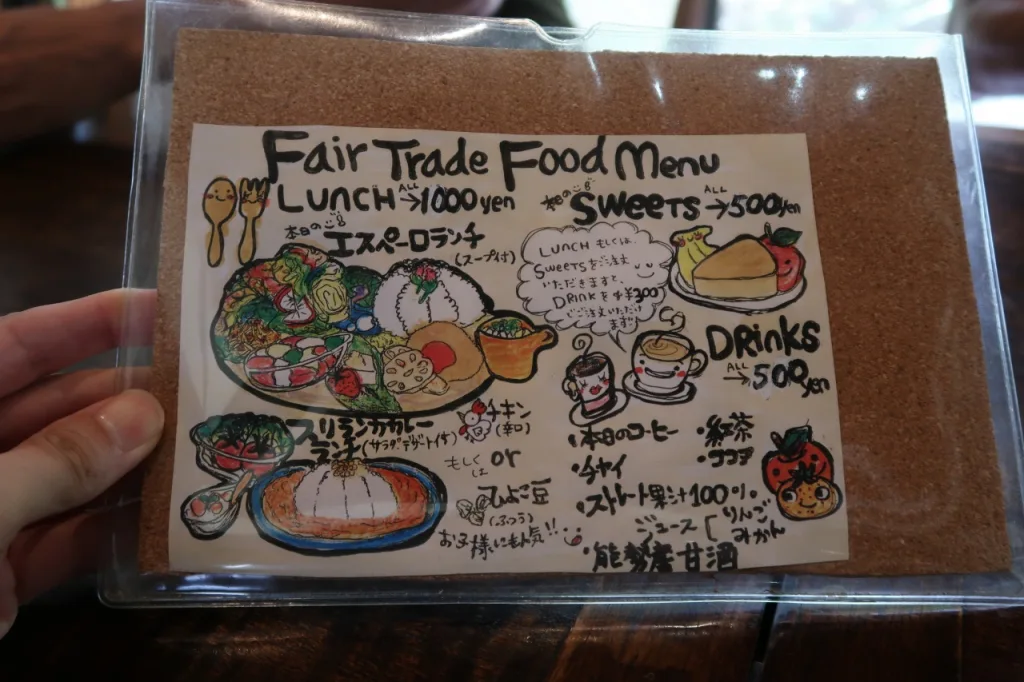 Fair Trade Food Menu
LUNCH ALL→1000yen
本日のごはん
エスペーロランチ
(スープ付)
スリランカカレー
ランチ(サラダ、デザート付)
チキン
(辛口)
もしくは or
ひよこ豆
(ふつう)
お子様にも人気!!
本日の
SWEETS ALL→500yen
LUNCH もしくは、
SWEETSをご注文
いただきますと、
DRINKを+¥300
でご注文いただけ
ます
DRINKS
ALL→500yen
・本日のコーヒー
・紅茶
・チャイ
・ココア
・ストレート果汁100%
ジュース [りんご
みかん
・能勢産甘酒